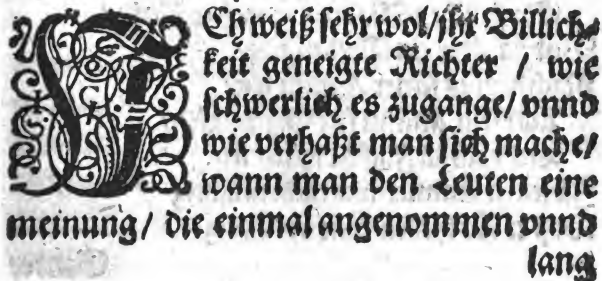 ICh weiß sehr wol/ jhr Billich⸗
keit geneigte Richter / wie
schwerlich es zugange/ vnnd
wie verhaßt man sich mache/
wann man den Leuten eine
meinung/ die einmal angenommen vnnd
lang